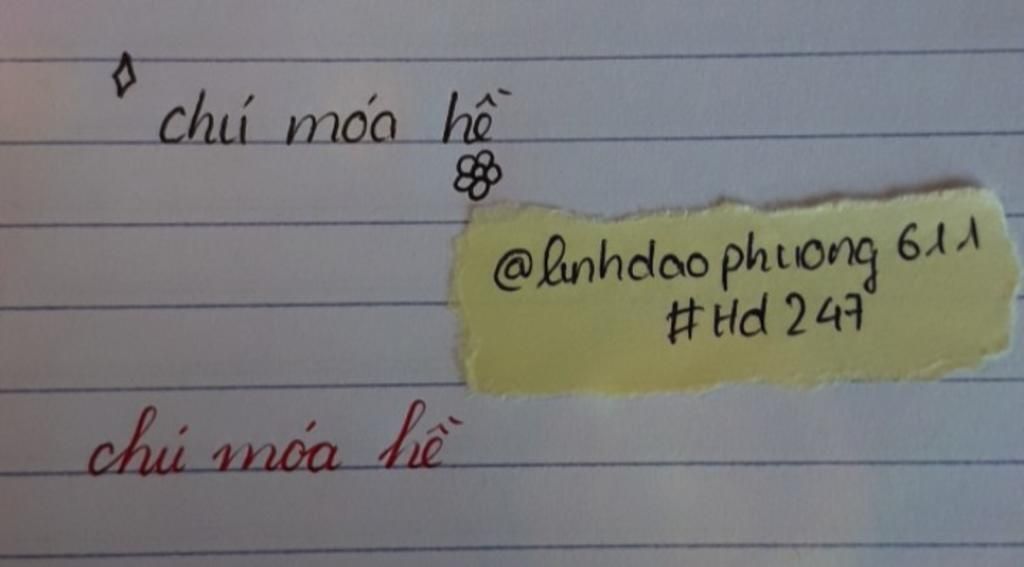 chú móa hề
@linhdaophuong 611
#Hd 247
chú móa hề